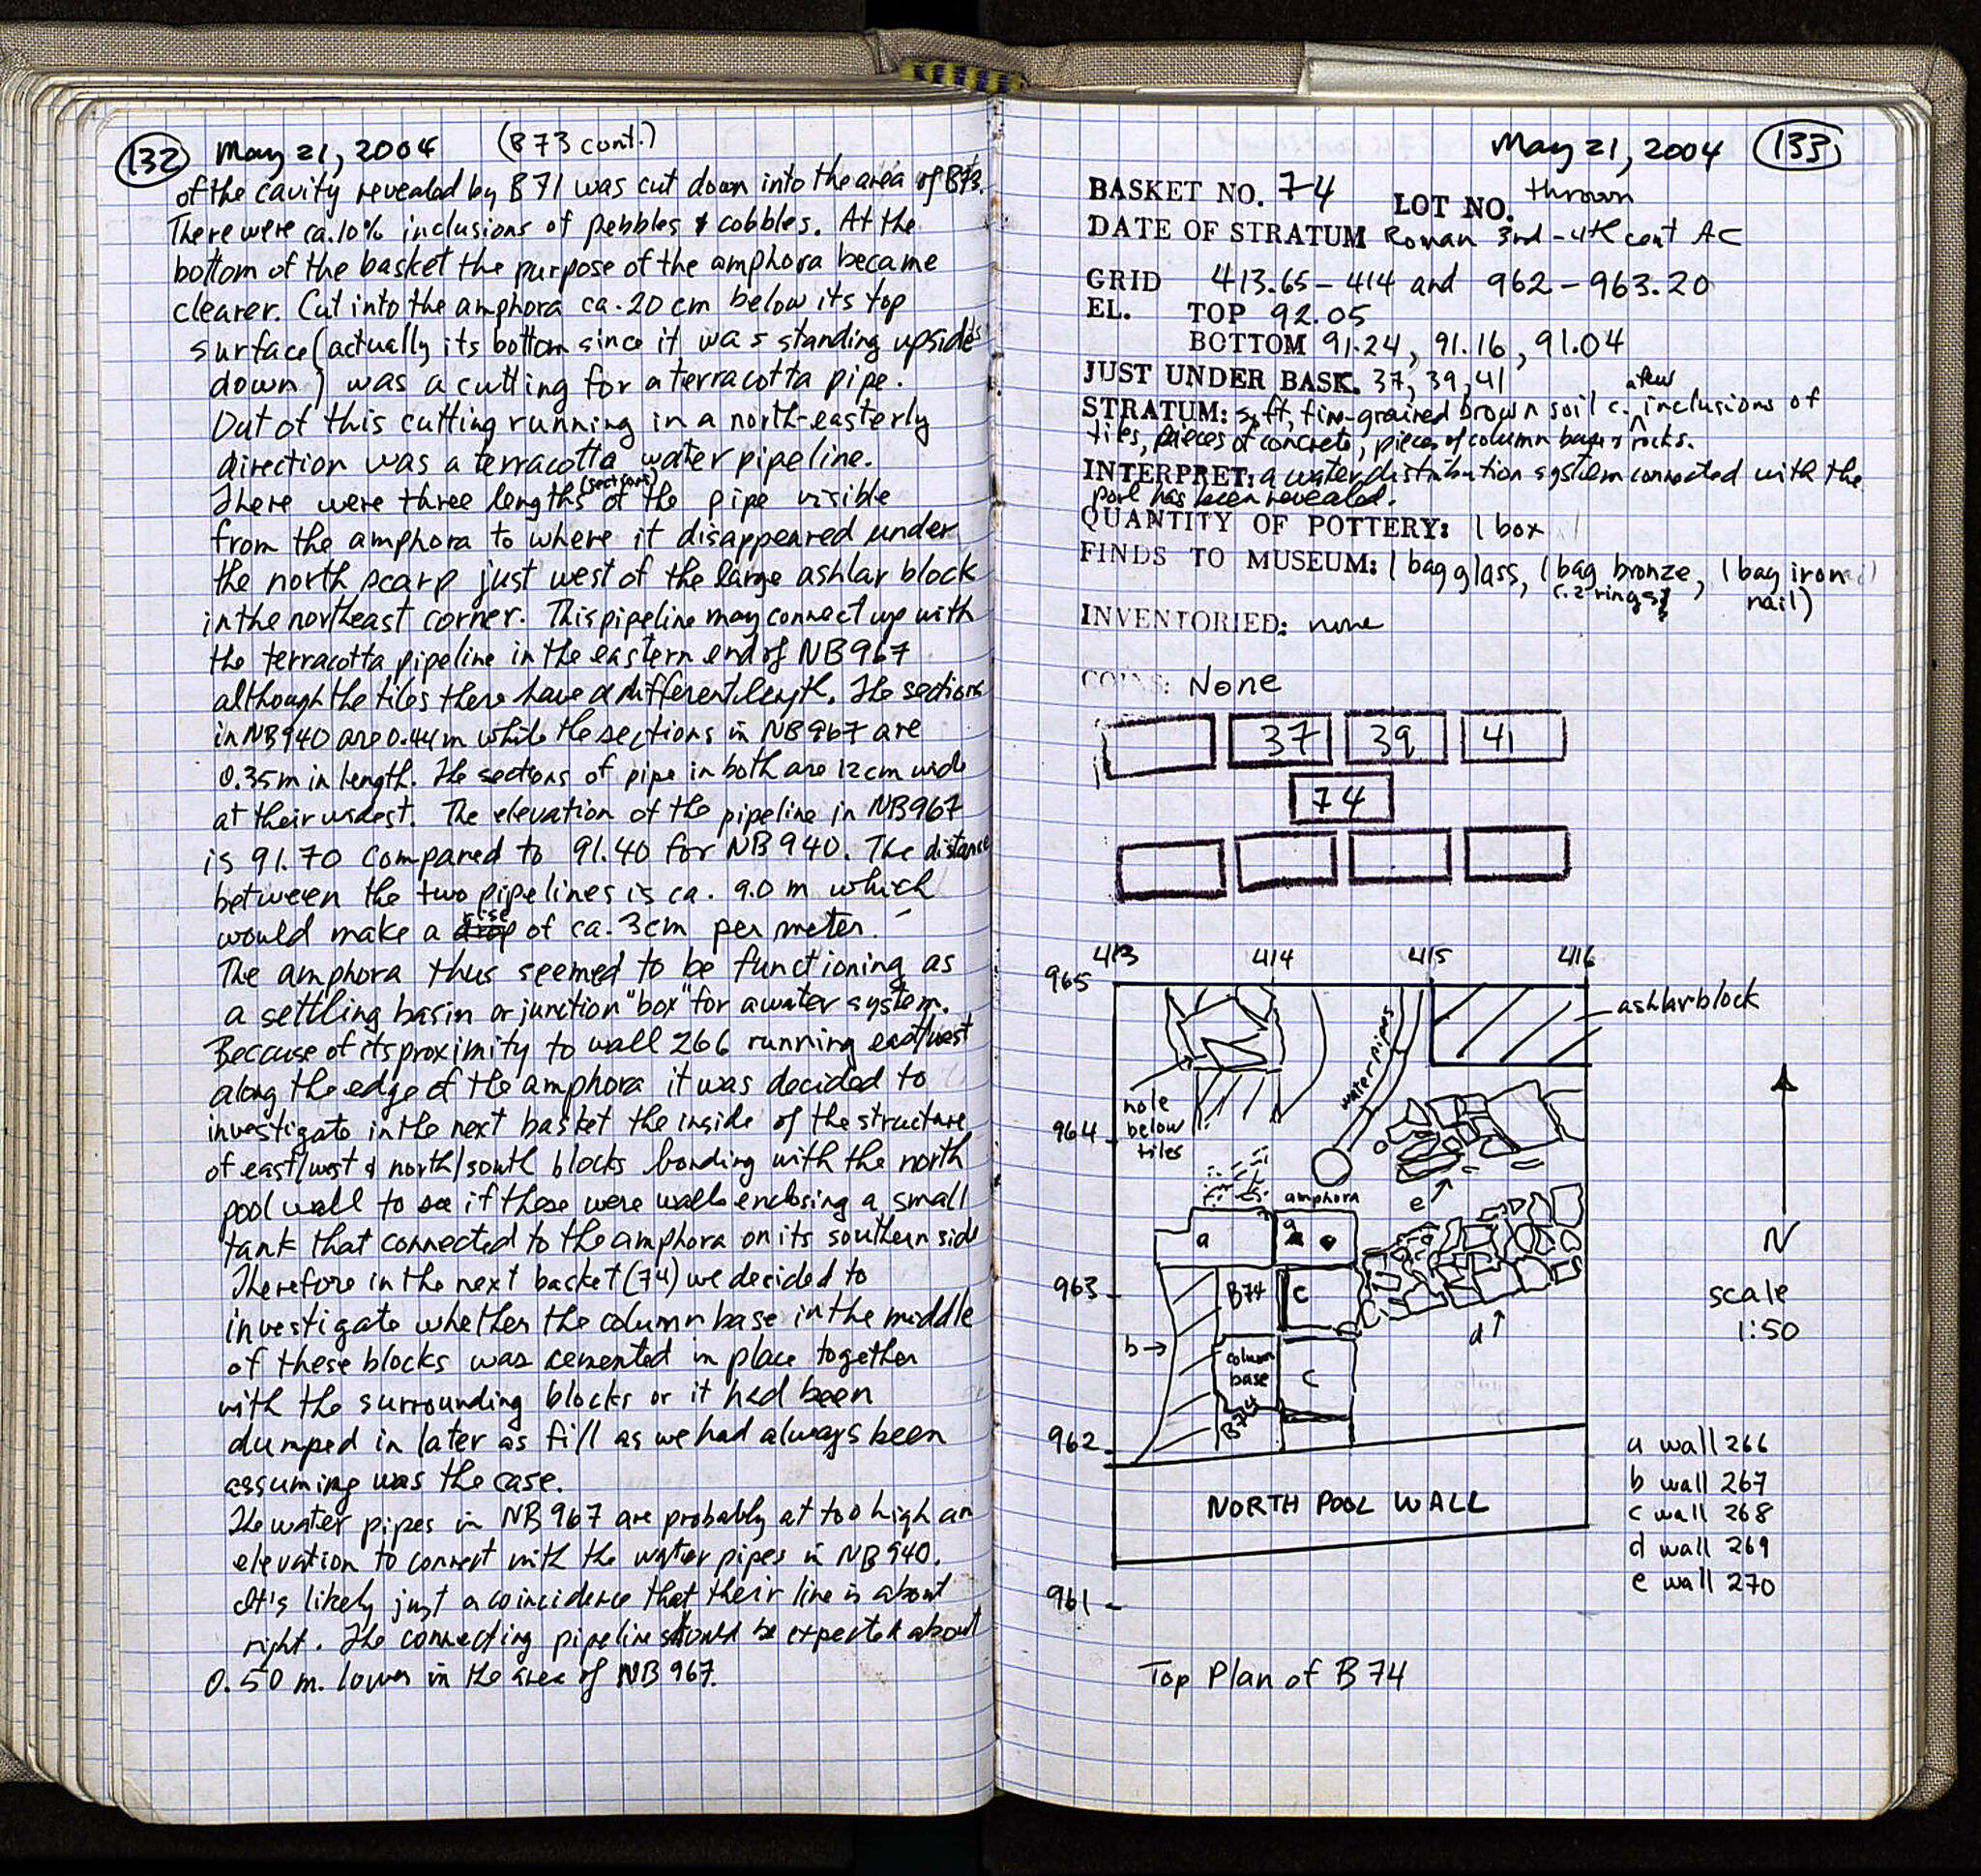 132 May 21, 2004 (B73 cont.)
of the cavity revealed by B71 was cut down into the area of B73.
There were ca. 10% inclusions of pebbles & cobbles. At the
bottom of the basket the purpose of the amphora became
clearer. Cut into the amphora ca. 20 cm below its top
surface (actually its bottom since it was standing upside
down) was a cutting for a terracotta pipe.
Out of this cutting running in a north-easterly
direction was a terracotta water pipeline.
There were three lengths (sections) of the pipe visible
from the amphora to where it disappeared under
the north scarp just west of the large ashlar block
in the northeast corner. This pipeline may connect up with
the terracotta pipeline in the eastern end of NB967
although the tiles there have a different length. The sections
in NB940 are 0.44m while the sections in NB967 are
0.35m in length. The sections of pipe in both are 12cm wide
at their widest. The elevation of the pipeline in NB967
is 91.70 compared to 91.40 for NB940. The distance
between the two pipelines is ca. 9.0 m which
would make a drop rise of ca. 3cm per meter.
The amphora thus seemed to be functioning as
a settling basin or junction "box" for a water system.
Because of its proximity to wall 266 running east/west
along the edge of the amphora it was decided to
investigate in the next basket the inside of the structure
of east/west & north/south blocks bonding with the north
pool wall to see if these were walls enclosing a small
tank that connected to the amphora on its southern side
Therefore in the next basket (74) we decided to
investigate whether the column base in the middle
of these blocks was cemented in place together
with the surrounding blocks or it had been
dumped in later as fill as we had always been
assuming was the case.
The water pipes in NB967 are probably at too high an
elevation to connect with the water pipes in NB940.
It's likely just a coincidence that their line is about
right. The connecting pipeline should be expected about
0.50 m. lower in the area of NB967.
May 21, 2004 133
BASKET NO. 74 LOT NO. thrown
DATE OF STRATUM Roman 3rd-4th cent AC
GRID 413.65-414 and 962-963.20
EL. TOP 92.05
BOTTOM 91.24, 91.16, 91.04
JUST UNDER BASK. 37, 39, 41
STRATUM: soft, fine-grained brown soil c. a few inclusions of
tiles, pieces of concrete, pieces of column base & rocks.
INTERPRET: a water distribution system connected with the
pool has been revealed.
QUANTITY OF POTTERY: 1 box
FINDS TO MUSEUM: 1 bag glass, 1 bag bronze, 1 bag iron
(.2 rings), nail)
INVENTORIED: none
COINS: None
37 39 41
74
413 414 415 416
965
ashlar block
water pipes
hole
below
tiles
964
amphora
e
a
a
963
B74
c
d
N
scale
1:50
b
column
base
c
B74
962
NORTH POOL WALL
a wall 266
b wall 267
c wall 268
d wall 269
e wall 270
961
Top Plan of B74